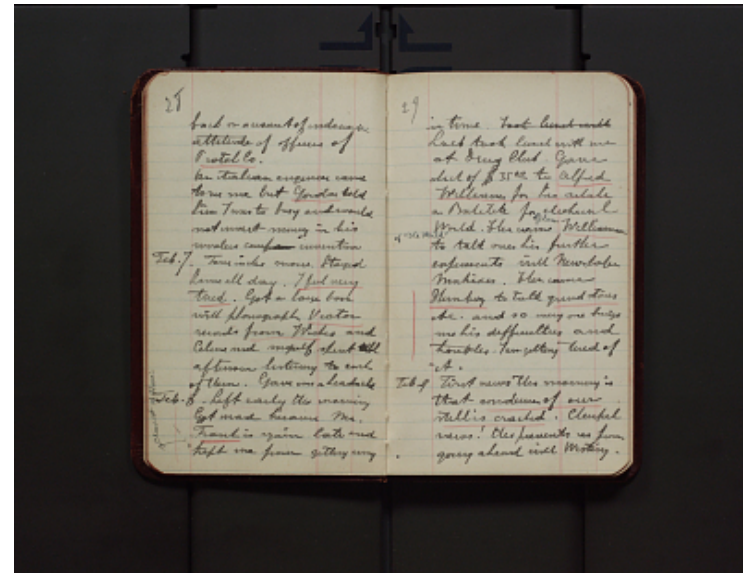 28
back on account of
attitude of officers of
Co.
An Italian engineer came
to see me but Gordon told
him I was to busy and would
not invest money in his
wireless invention
Feb. 7. Two inches snow. Stayed
home all day. I feel very
tired. Got a large box
with phonograph Victor
records from and
Celine and myself spent all
afternoon listening to each
of them. Gave me a headache
Feb. 8. Left early this morning
Got mad because Mr.
Frank is again late and
kept me from getting away
29
in time. Took lunch with
took lunch with me
at Drug Club. Gave
check of $ 35 00 to Alfred
Williams for his article
on Bakelite for
World. Then came Williams
of the World
to talk over his further
experiments with
Matrixes. Then came
to talk grind stones
etc. and so every one brings
me his difficulties and
troubles. I am getting tired of
it.
Feb. 9. First news this morning is
that condenser of our
still is cracked. Cheerful
news! This prevents us from
going ahead with